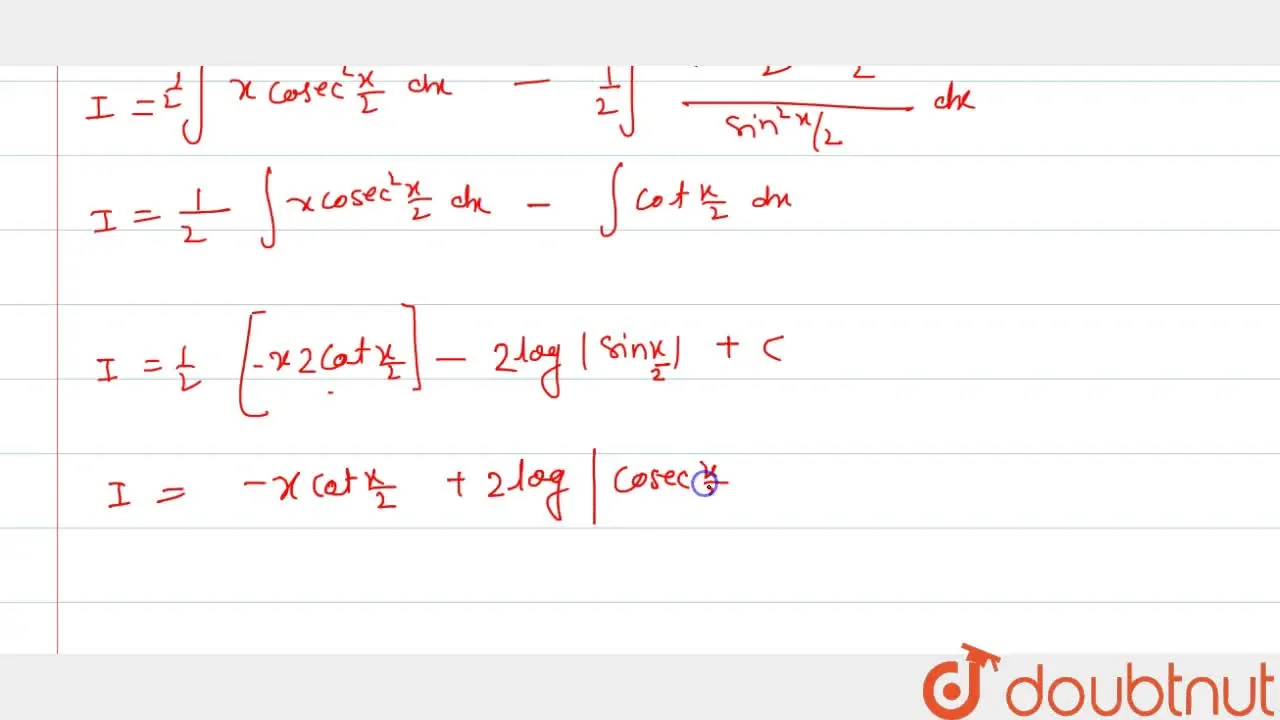 I = 1/2 ∫ x cosec² x/2 dx − 1/2 ∫ 2 2 / sin² x/2 dx
I = 1/2 ∫ x cosec² x/2 dx − ∫ cot x/2 dx
I = 1/2 [-x 2 cot x/2] − 2 log | sin x/2 | + C
I = -x cot x/2 + 2 log | cosec x/
doubtnut